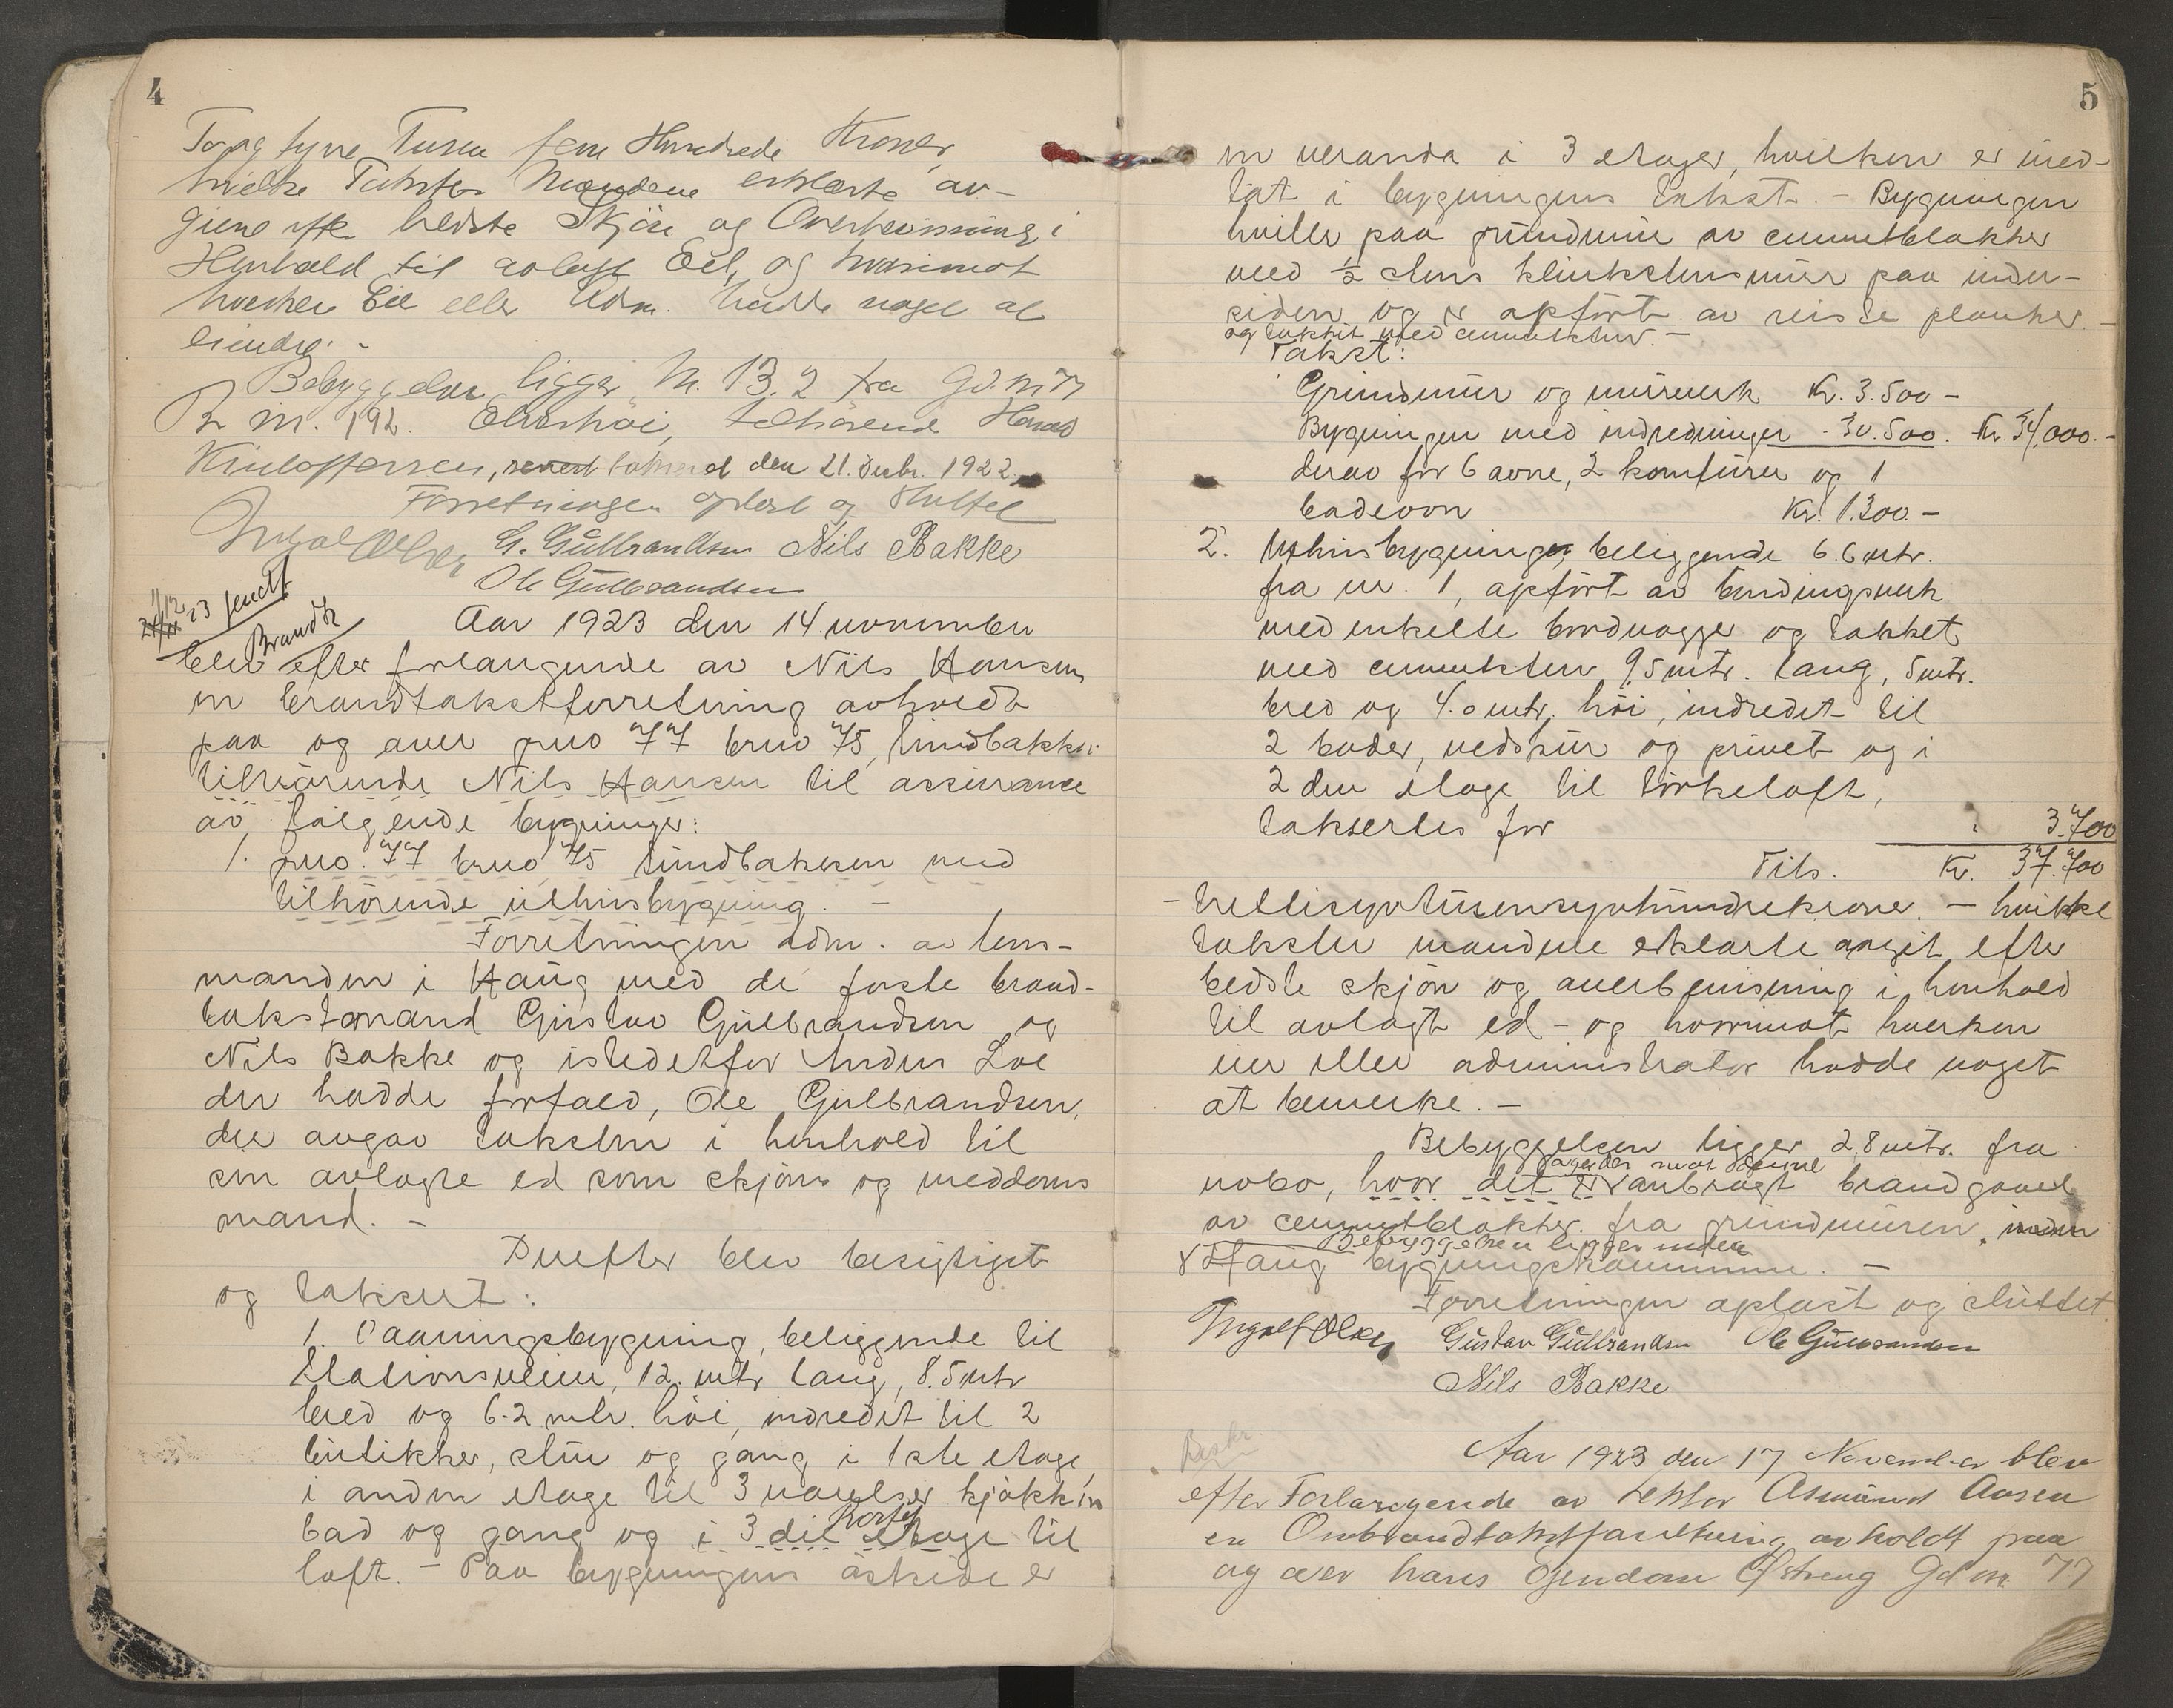 4
Toogtyve Tusen fem Hundrede Kroner,
hvilke Takster Mændene erklærte av-
givne efter bedste Skjön og Overbevisning i
Henhold til avlagt Eed, og hvorimot
hverken Eie eller Adm. hadde noget at
erindre. -
Bebyggelsen ligger M. 13.2 fra Gd. nr 77
Br nr. 192. Elvehöi, tilhörende Harald
Kristoffersen, taksered den 21. Decbr. 1922.
Forretningen oplæst og sluttet
Ingolf Olsen G. Gulbrandsen Nils Bakke
Ole Gulbrandsen
11/12 23 sendt
Brandk
Aar 1923 den 14. november
blev efter forlangende av Nils Hansen
en brandtakstforretning avholdt
paa og over gno 77 bruo 75, Lundbakken
tilhörende Nils Hansen til assurance
av følgende bygninger:
1. gno. 77 bruo 75 Lundbakken med
tilhörende uthusbygning. -
Forretningen adm. av lens-
manden i Haug med de faste brand-
takstmænd Gustav Gulbrandsen og
Nils Bakke og istedetfor Anders Loe
der hadde forfald, Ole Gulbrandsen,
der avgav taksten i henhold til
sin avlagte ed som skjöns og meddoms
mand. -
Derefter blev besigtiget
og taksert:
1. Vaaningsbygning, beliggende til
Stationsveien, 12. mtr lang, 8.5 mtr
bred og 6.2 mtr. höi, indredet til 2
butikker, stue og gang i 1ste etage,
i anden etage til 3 værelser kjökken
bad og gang og i 3die etage til
loft. - Paa bygningens östside er
5
en veranda i 3 etager, hvilken er med-
tat i bygningens takst. - Bygningen
hviler paa grundmur av cementblokker
med ½ stens klinkstensmur paa inder-
siden og er opfört av reiste planker -
og takket med cementsten. -
Takst:
Grundmur og murverk Kr. 3.500 -
Bygningen med indredninger - 30.500. Kr. 34,000. -
derav for 6 ovne, 2 komfurer og 1
badeovn Kr. 1.300. -
2. Uthusbygning, beliggende 6.6 mtr.
fra nr. 1, opfört av bindingsverk
med enkelte bordvægge og takket
med cementsten 9.5 mtr. lang, 5 mtr.
bred og 4.0 mtr. höi, indredet til
2 boder, vedskur og privet og i
2den etage til törkeloft,
taksertes for 3.700
Tils. Kr. 37.700
- trettisyvtusensyvhundrekroner. - hvilke
takster mændene erklærte avgit efter
bedste skjön og overbevisning i henhold
til avlagt ed - og hvorimot hverken
eier eller administrator hadde noget
at bemerke. -
Bebyggelsen ligger 2,8 mtr. fra
nabo, hvor det er anbragt brandgavel
av cementblokker fra grundmuren.
Bebyggelsen ligger inden
Haug bygningskommune. -
Forretningen oplæst og sluttet
Ingolf Olsen Gustav Gulbrandsen Ole Gulbrandsen
Nils Bakke
Beskr.
Aar 1923 den 17 November blev
efter Forlangende av Lektor Asmund Aasen
en Ombrandtakstforretning avholdt paa
og over hans Ejendom Østeng Gd. nr. 77